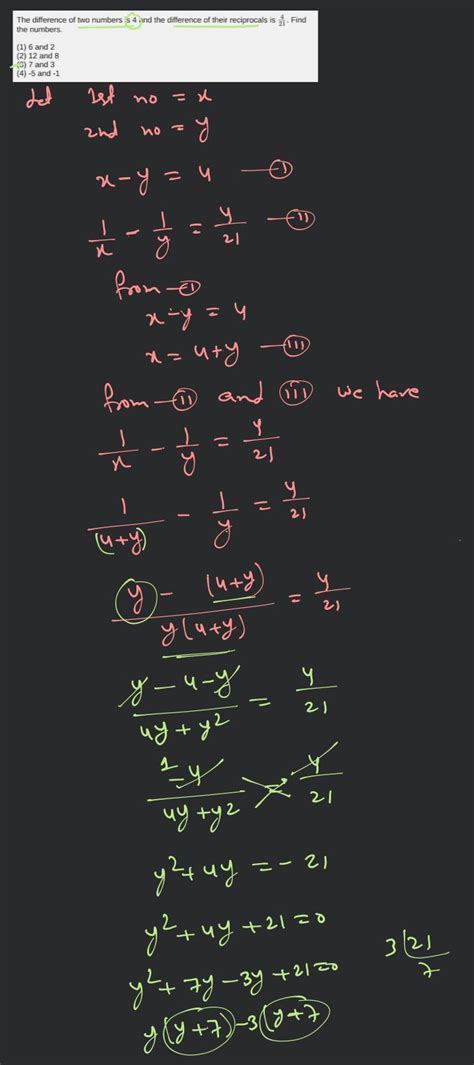 The difference of two numbers is 4 and the difference of their reciprocals is 4/21. Find
the numbers.
(1) 6 and 2
(2) 12 and 8
(3) 7 and 3
(4) -5 and -1
Let 1st no = x
2nd no = y
x-y = 4 —(I)
1/x - 1/y = 4/21 —(II)
from —(I)
x-y = 4
x = 4+y —(III)
from —(II) and (III) we have
1/x - 1/y = 4/21
1/(4+y) - 1/y = 4/21
y - (4+y)/y(4+y) = 4/21
y - 4 - y/4y + y² = 4/21
1
-4/4y + y² = 4/21
y² + 4y = - 21
y² + 4y + 21 = 0
3 21
y² + 7y - 3y + 21 = 0
7
y(y+7) - 3(y+7